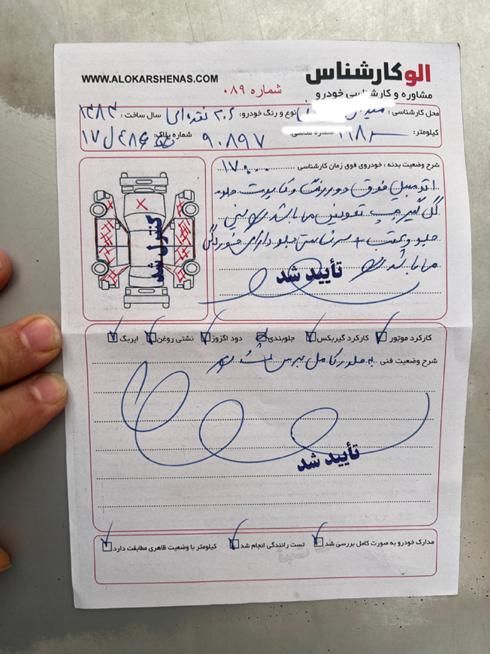 الو کارشناس
WWW.ALOKARSHENAS.COM
مشاوره و کارشناسی خودرو
شماره ۰۸۹
محل کارشناسی : نوع و رنگ خودرو: ۲۰۶ نقره‌ای سال ساخت : ۱۳۸۳
کیلومتر: شماره شاسی ۹۰۸۹۷ شماره پلاک:
شرح وضعیت بدنه : خودروی فوق زمان کارشناسی ۱۷۰۰۰۰
اتومبیل فوق دور رنگ و کاپوت جلو
گل گیر چپ تعویض می باشد
جلو و عقب سرشاسی جلو دارای خوردگی
می باشد
تأیید شد
کنترل شد
کارکرد موتور کارکرد گیربکس جلوبندی دود اگزوز نشتی روغن ایربگ
شرح وضعیت فنی به طور کامل بررسی شد
تأیید شد
مدارک خودرو به صورت کامل بررسی شد تست رانندگی انجام شد کیلومتر با وضعیت ظاهری مطابقت دارد